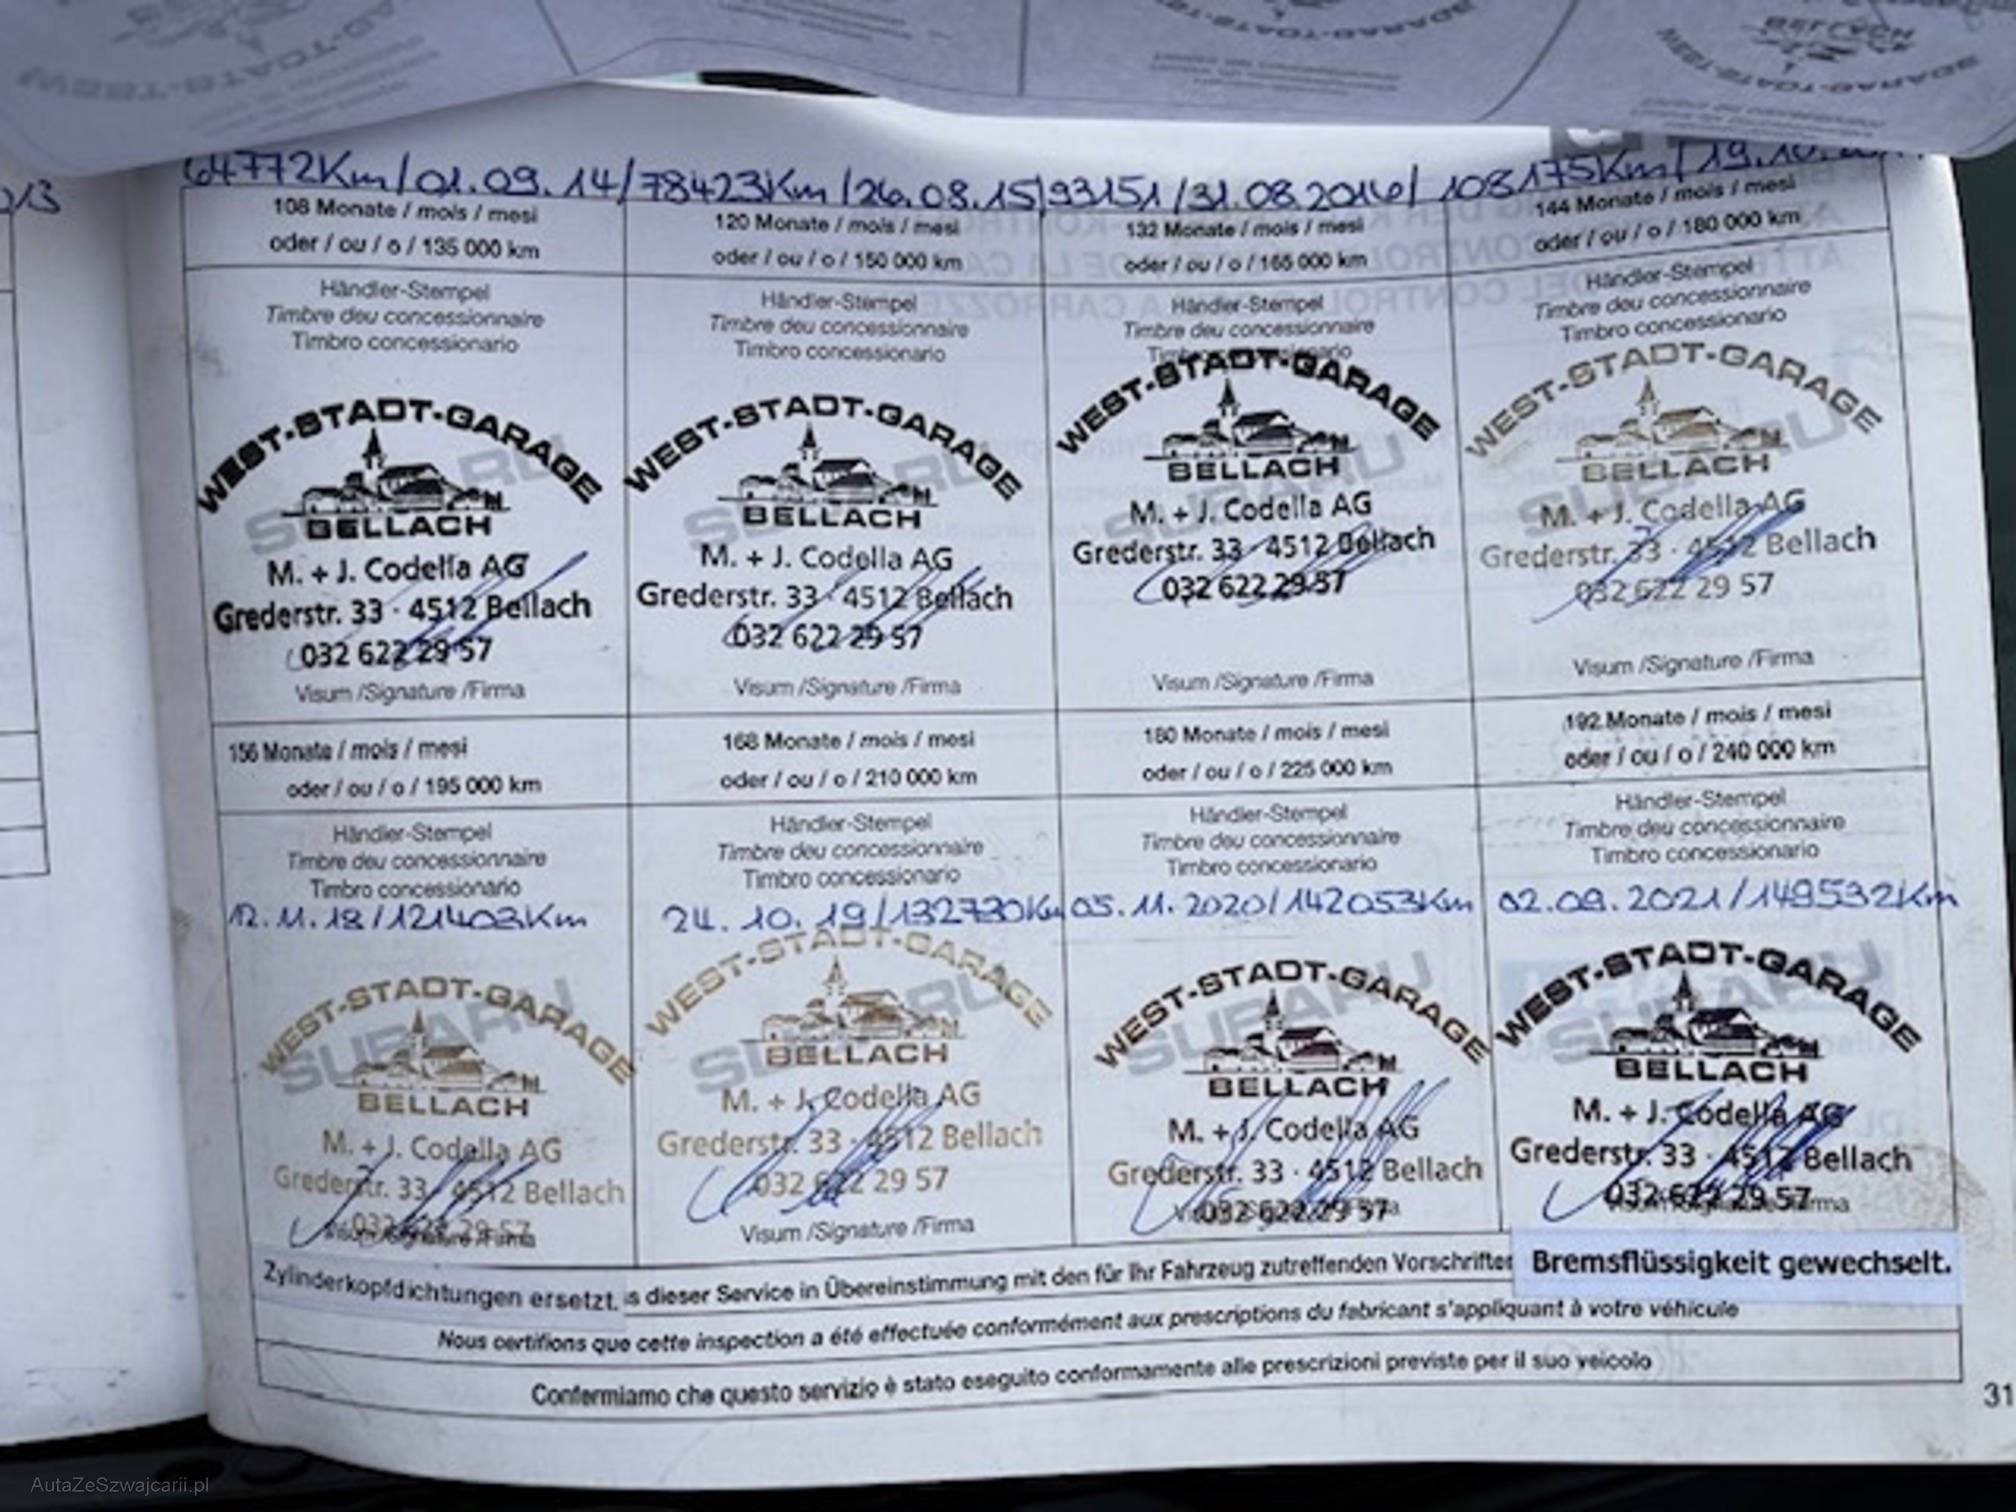 64772Km/01.09.14/78423Km/26.08.15/93151/31.08.2016/108175Km/19.10.
108 Monate / mois / mesi
oder / ou / o / 135 000 km
Händler-Stempel
Timbre deu concessionnaire
Timbro concessionario
WEST-STADT-GARAGE
SUBARU
BELLACH
M. + J. Codella AG
Grederstr. 33 · 4512 Bellach
032 622 29 57
Visum /Signature /Firma
120 Monate / mois / mesi
oder / ou / o / 150 000 km
Händler-Stempel
Timbre deu concessionnaire
Timbro concessionario
WEST-STADT-GARAGE
SUBARU
BELLACH
M. + J. Codella AG
Grederstr. 33 · 4512 Bellach
032 622 29 57
Visum /Signature /Firma
132 Monate / mois / mesi
oder / ou / o / 165 000 km
Händler-Stempel
Timbre deu concessionnaire
Timbro concessionario
WEST-STADT-GARAGE
SUBARU
BELLACH
M. + J. Codella AG
Grederstr. 33 · 4512 Bellach
032 622 29 57
Visum /Signature /Firma
144 Monate / mois / mesi
oder / ou / o / 180 000 km
Händler-Stempel
Timbre deu concessionnaire
Timbro concessionario
WEST-STADT-GARAGE
SUBARU
BELLACH
M. + J. Codella AG
Grederstr. 33 · 4512 Bellach
032 622 29 57
Visum /Signature /Firma
156 Monate / mois / mesi
oder / ou / o / 195 000 km
Händler-Stempel
Timbre deu concessionnaire
Timbro concessionario
12.11.18/121403Km
WEST-STADT-GARAGE
SUBARU
BELLACH
M. + J. Codella AG
Grederstr. 33 · 4512 Bellach
032 622 29 57
Visum /Signature /Firma
168 Monate / mois / mesi
oder / ou / o / 210 000 km
Händler-Stempel
Timbre deu concessionnaire
Timbro concessionario
24.10.19/132730Km
WEST-STADT-GARAGE
SUBARU
BELLACH
M. + J. Codella AG
Grederstr. 33 · 4512 Bellach
032 622 29 57
Visum /Signature /Firma
180 Monate / mois / mesi
oder / ou / o / 225 000 km
Händler-Stempel
Timbre deu concessionnaire
Timbro concessionario
05.11.2020/142053Km
WEST-STADT-GARAGE
SUBARU
BELLACH
M. + J. Codella AG
Grederstr. 33 · 4512 Bellach
032 622 29 57
192 Monate / mois / mesi
oder / ou / o / 240 000 km
Händler-Stempel
Timbre deu concessionnaire
Timbro concessionario
02.09.2021/149532Km
WEST-STADT-GARAGE
SUBARU
BELLACH
M. + J. Codella AG
Grederstr. 33 · 4512 Bellach
032 622 29 57
Zylinderkopfdichtungen ersetzt. s dieser Service in Übereinstimmung mit den für Ihr Fahrzeug zutreffenden Vorschriften Bremsflüssigkeit gewechselt.
Nous certifions que cette inspection a été effectuée conformément aux prescriptions du fabricant s'appliquant à votre véhicule
Confermiamo che questo servizio è stato eseguito conformamente alle prescrizioni previste per il suo veicolo
31
AutaZeSzwajcarii.pl